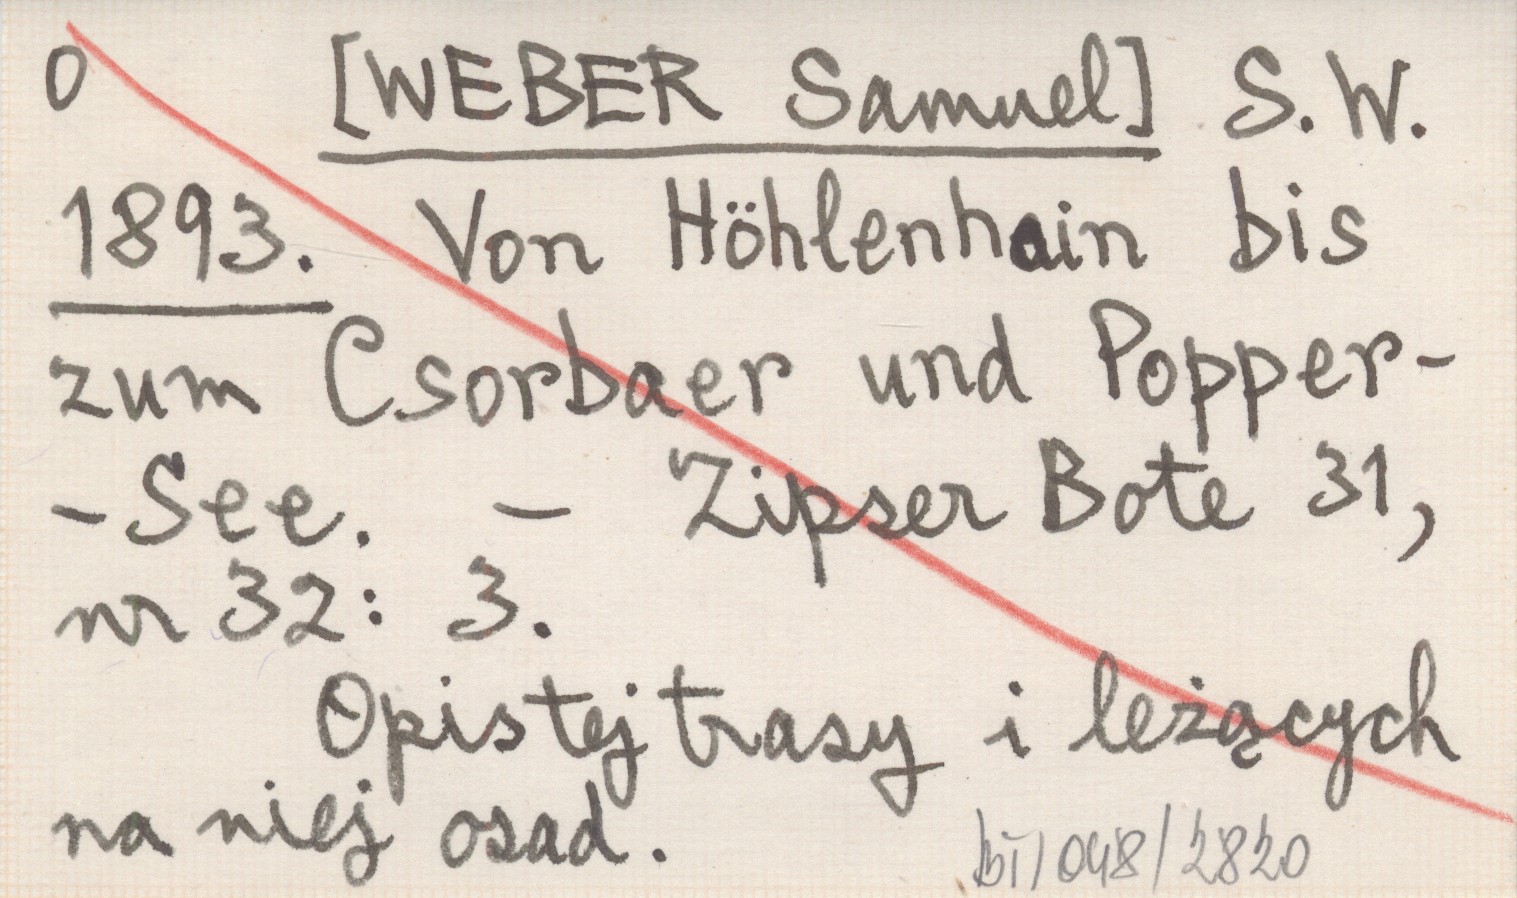 0 [WEBER Samuel] S. W.
1893. Von Höhlenhain bis
zum Csorbaer und Popper-
-See. - Zipser Bote 31,
nr 32: 3.
Opis tej trasy i leżących
na niej osad.
bi/048/2820